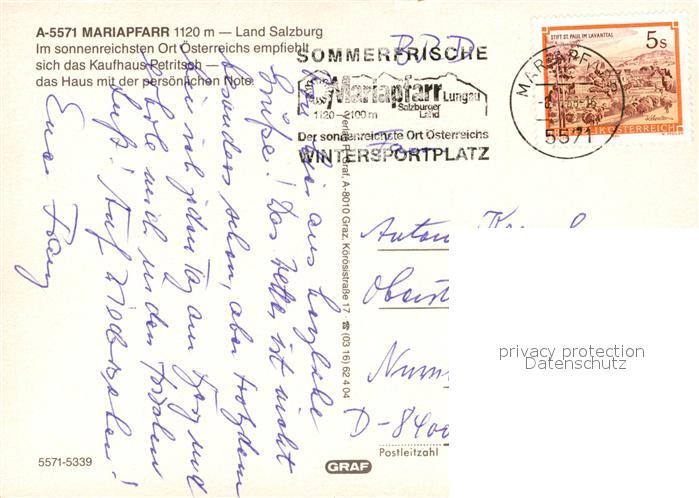 A-5571 MARIAPFARR 1120 m — Land Salzburg
Im sonnenreichsten Ort Österreichs empfiehlt
sich das Kaufhaus Petritsch —
das Haus mit der persönlichen Note.
BRD
SOMMERFRISCHE
Mariapfarr Lungau
Salzburger
Land
1120 - 2100 m
Der sonnenreichste Ort Österreichs
WINTERSPORTPLATZ
MARIAPFARR
5571
STIFT ST. PAUL IM LAVANTTAL
5s
REPUBLIK ÖSTERREICH
hier aus herzliche
Grüße! Das Wetter ist nicht
besonders schön, aber trotzdem
sind wir jeden Tag am Berg und
haben und unseren
Spaß! Auf Wiedersehen!
Euer Franz
Verlag Graf, A-8010 Graz, Körösistraße 17 · ☎ (03 16) 62 4 04
Anton
D-8400
Postleitzahl
5571-5339
GRAF
privacy protection
Datenschutz